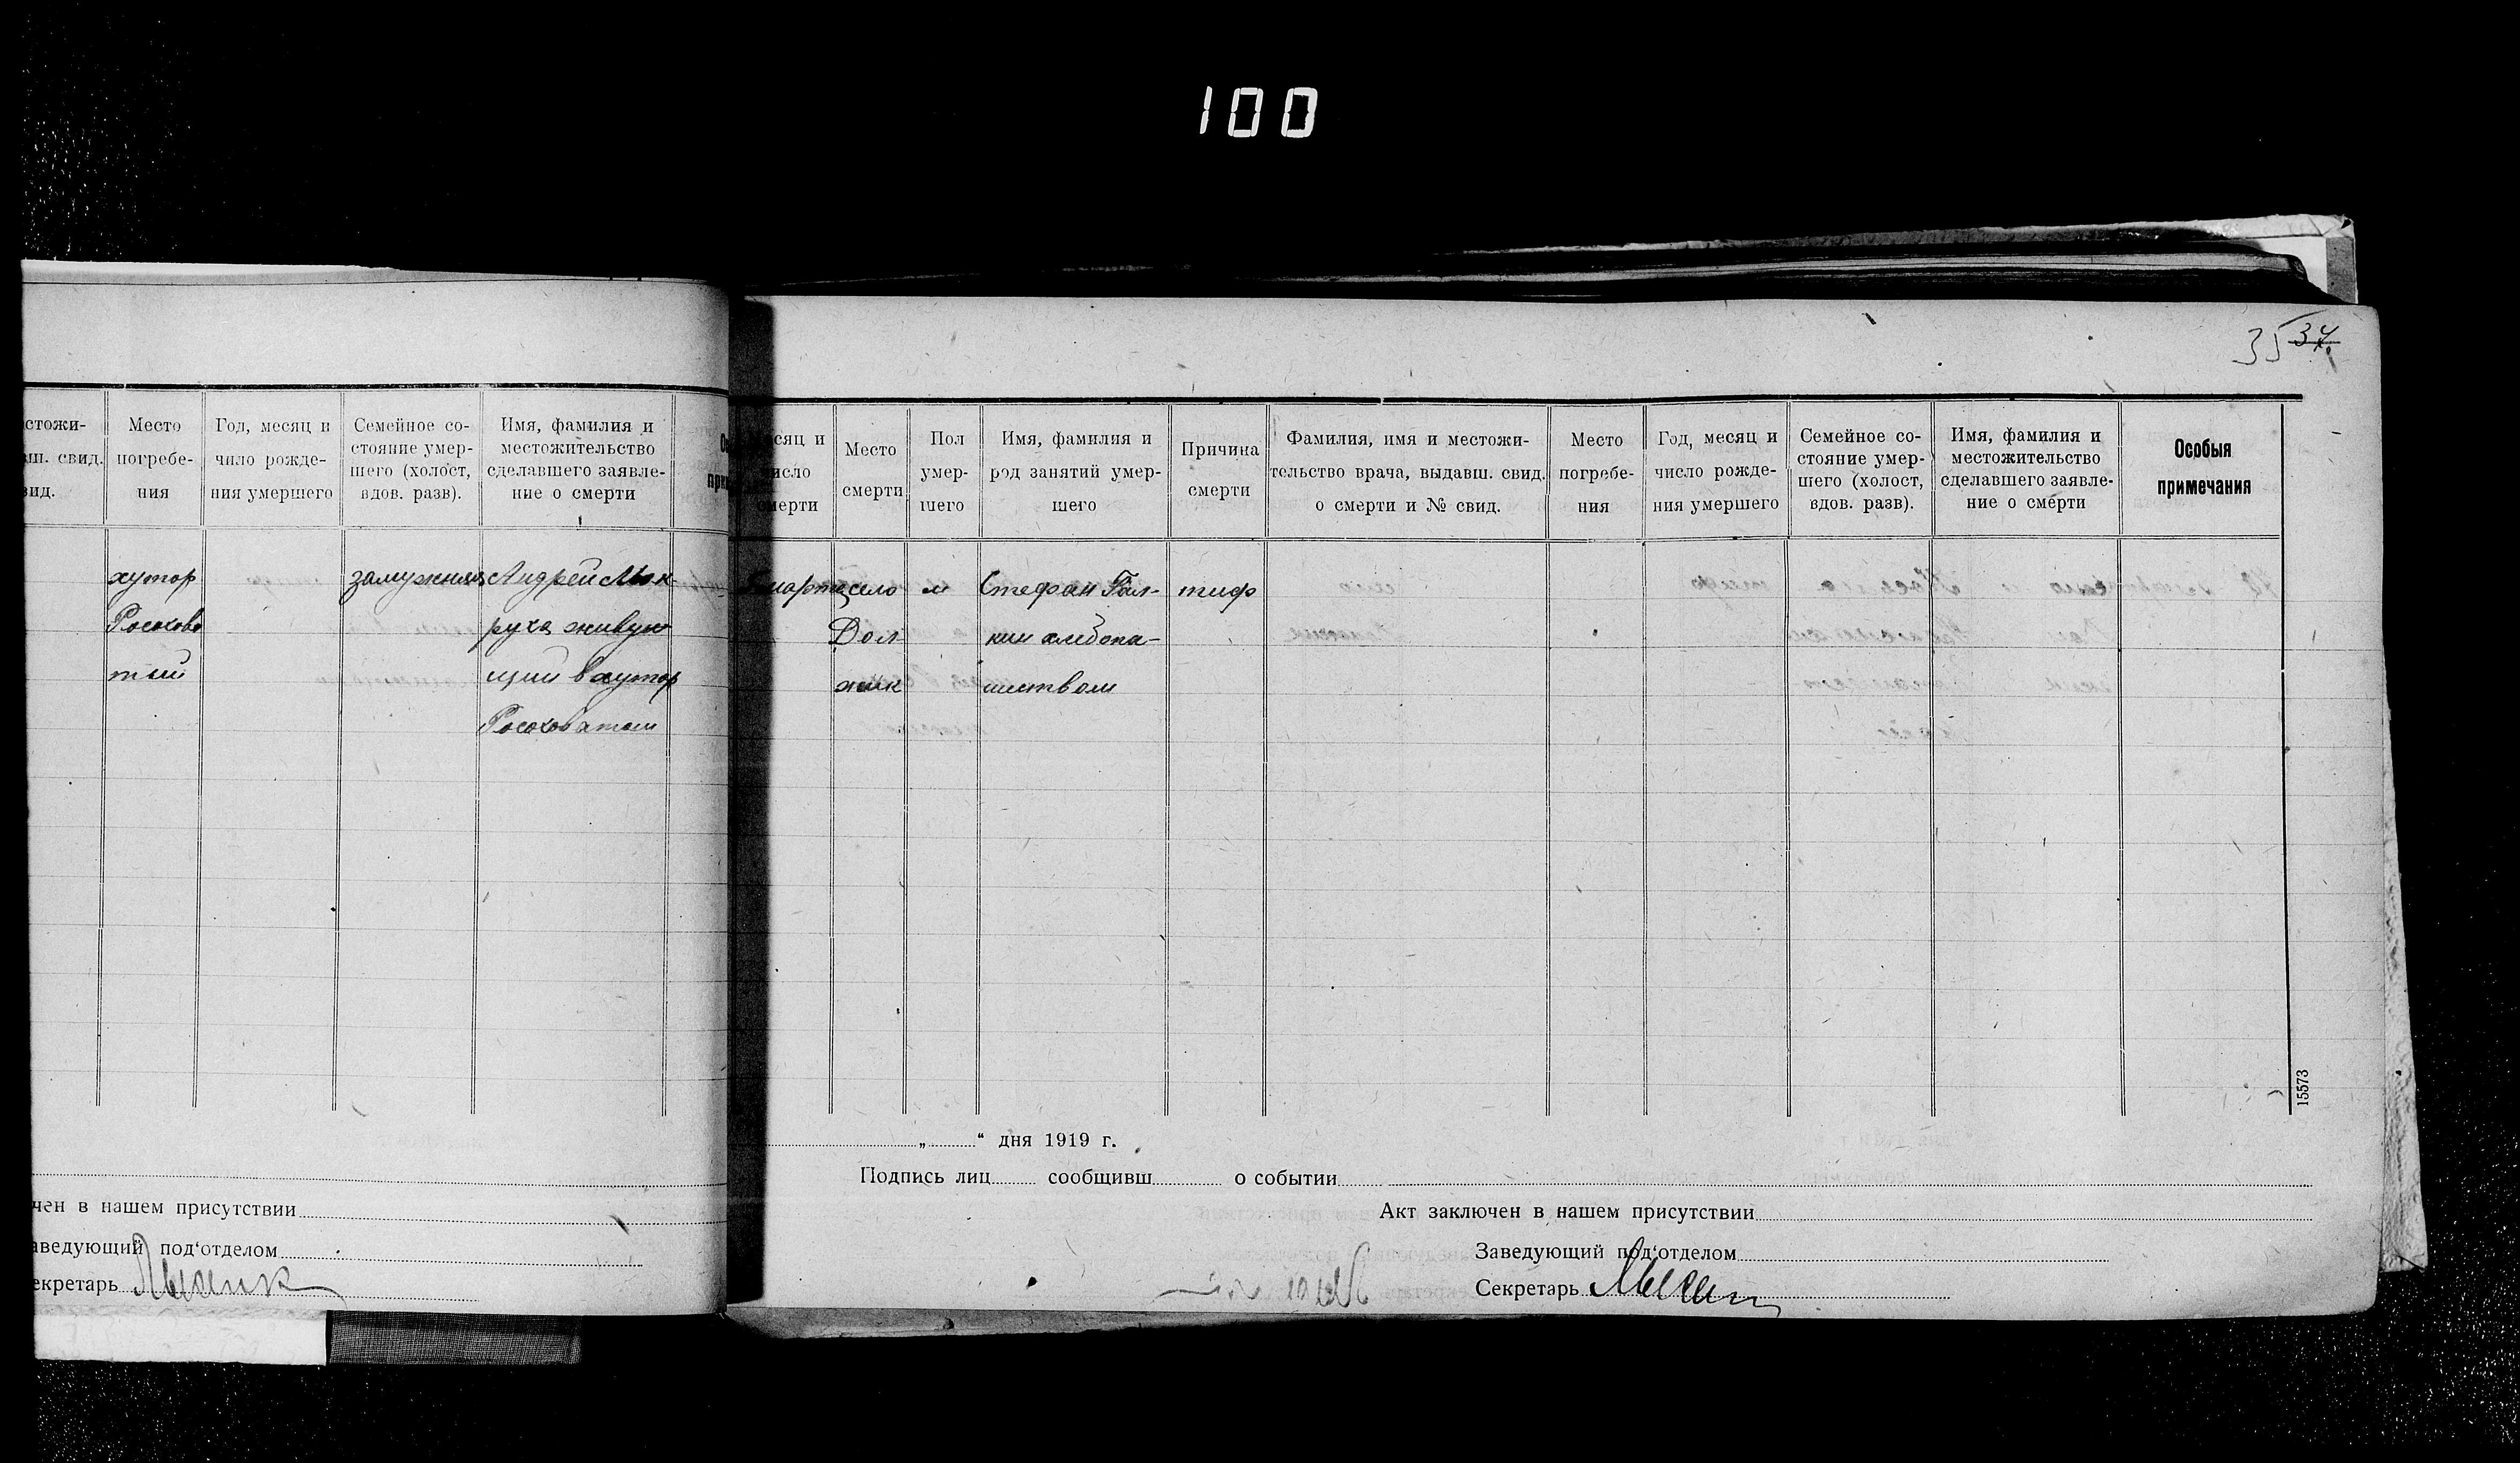 100
35 34.
стожи-
ш. свид.
вид.
Место
погребе-
ния
Год, месяц и
чило рожде-
ния умершего
Семейное со-
стояние умер-
шего (холост,
вдов. разв).
Имя, фамилия и
местожительство
сделавшего заявле-
ние о смерти
хутор
Росохова
тый
замужняя
Андрей Мок-
руха живую
щий в хутор
Росоховатом
чен в нашем присутствии
аведующий под'отделом
екретарь
сяц и
исло
мерти
Место
смерти
Пол
умер-
шего
Имя, фамилия и
род занятий умер-
шего
Причина
смерти
Фамилия, имя и местожи-
тельство врача, выдавш. свид.
о смерти и № свид.
Место
погребе-
ния
Год, месяц и
число рожде-
ния умершего
Семейное со-
стояние умер-
шего (холост,
вдов. разв).
Имя, фамилия и
местожительство
сделавшего заявле-
ние о смерти
Особыя
примечания
марта
село
Дол
жик
м
Стефан Гал-
кин хлебопа-
шеством
тиф
15573
„ “ дня 1919 г.
Подпись лиц сообщивш о событии
Акт заключен в нашем присутствии
Заведующий под'отделом
Секретарь